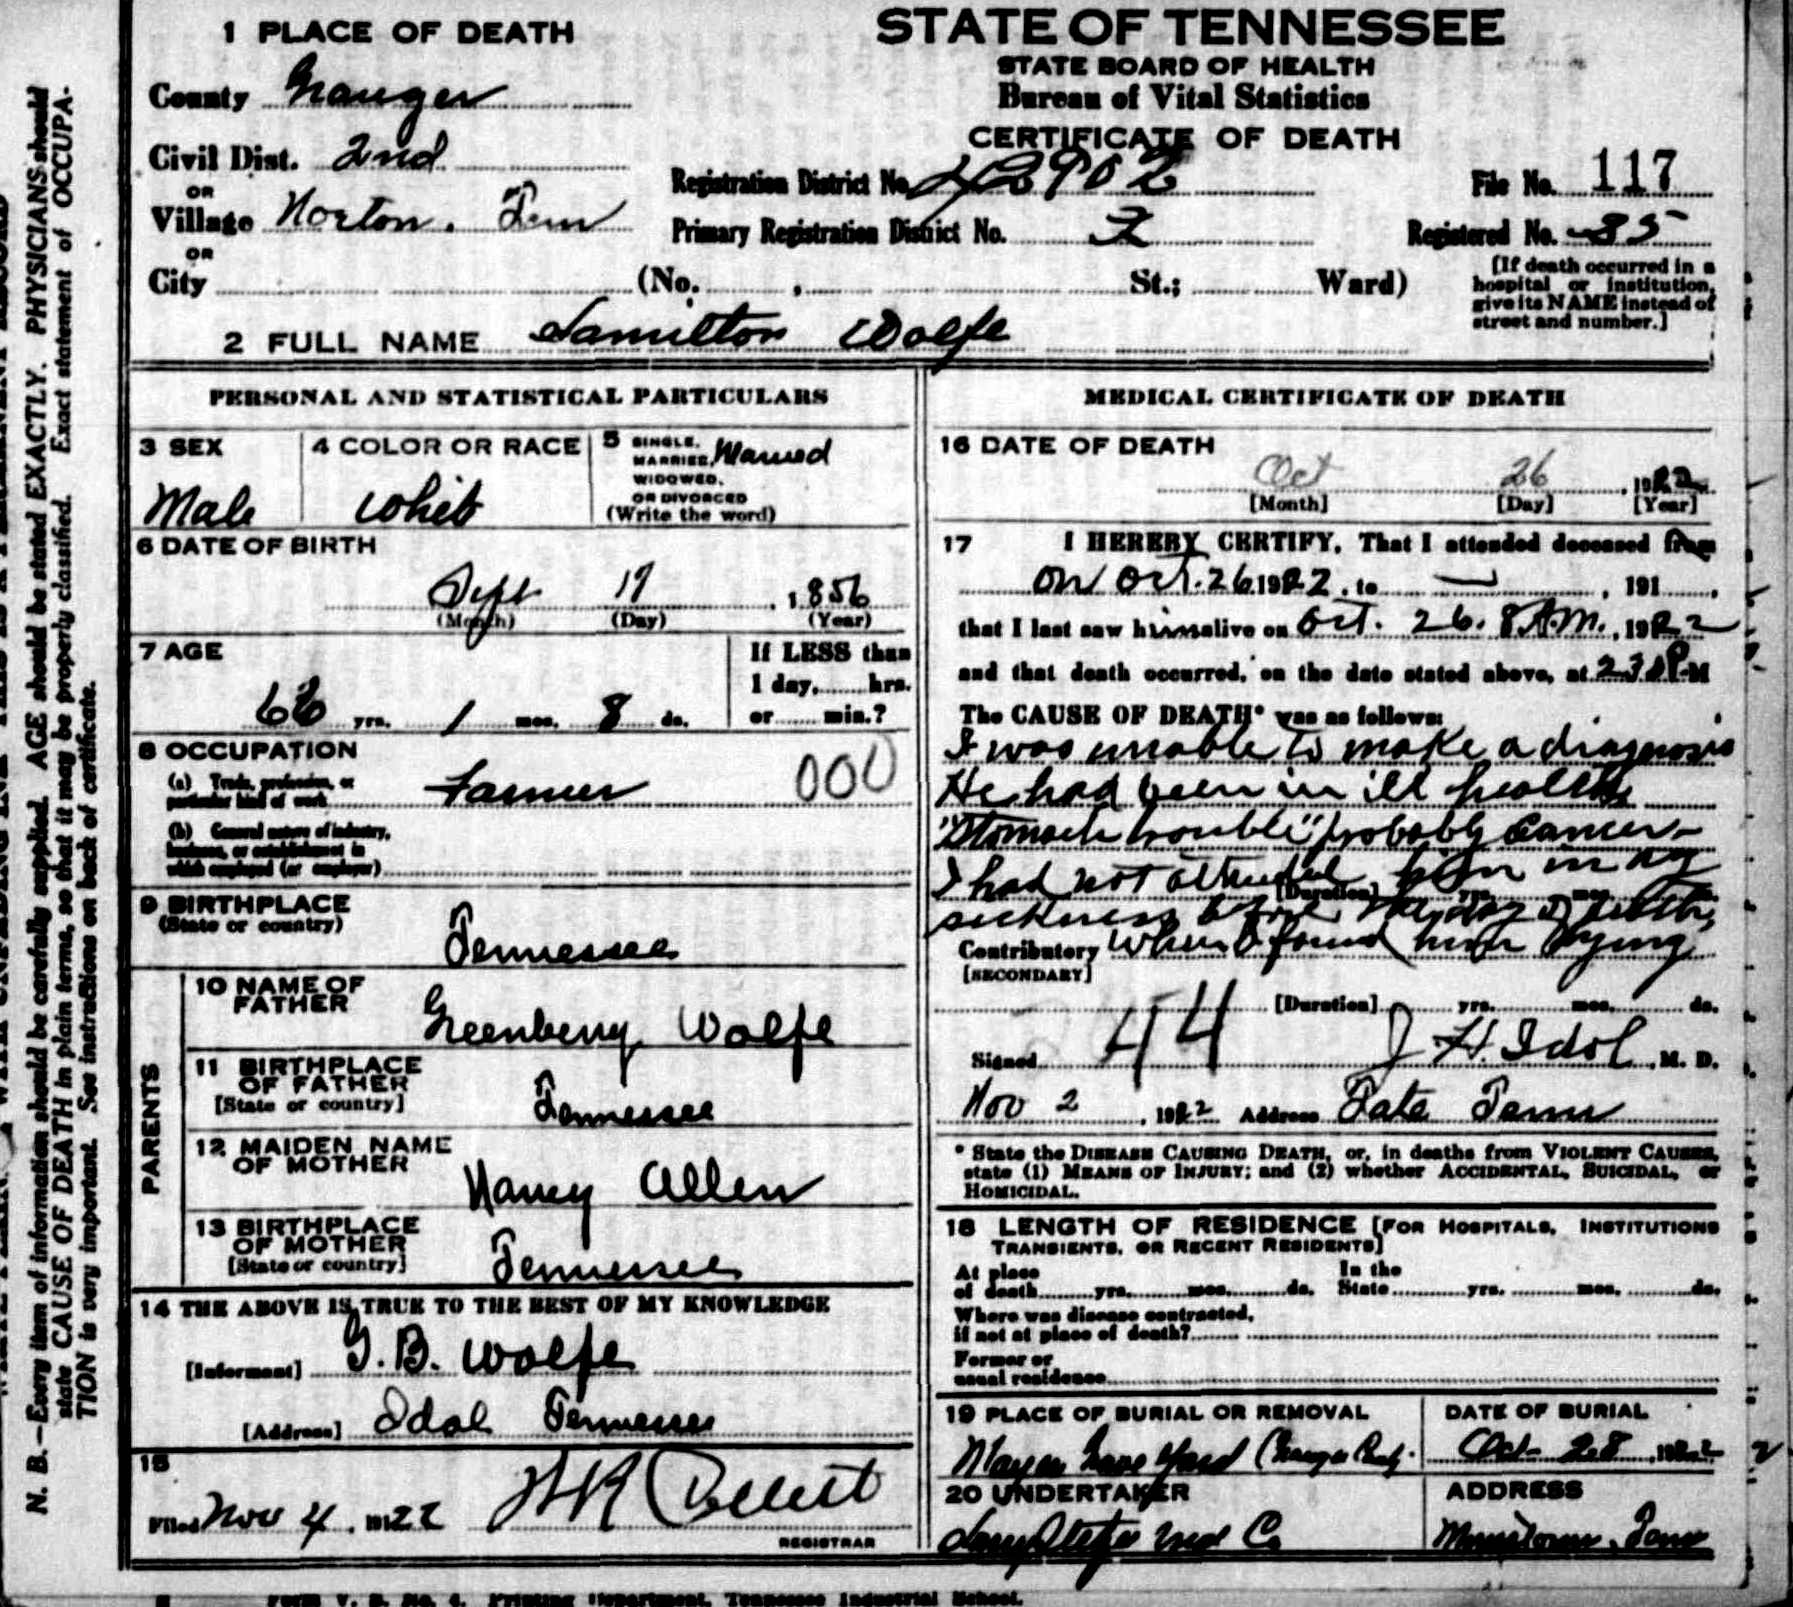 1 PLACE OF DEATH
STATE OF TENNESSEE
STATE BOARD OF HEALTH
Bureau of Vital Statistics
CERTIFICATE OF DEATH
County Grainger
Civil Dist. 2nd
OR
Village Norton. Tenn
OR
City (No. , St.; Ward)
Registration District No. 2902
File No. 117
Primary Registration District No. 2
Registered No. 35
[If death occurred in a
hospital or institution,
give its NAME instead of
street and number.]
2 FULL NAME Hamilton Wolfe
PERSONAL AND STATISTICAL PARTICULARS
3 SEX
Male
4 COLOR OR RACE
White
5 SINGLE,
MARRIED, Married
WIDOWED,
OR DIVORCED
(Write the word)
6 DATE OF BIRTH
Sept 19, 1856
(Month) (Day) (Year)
7 AGE
66 yrs. 1 mos. 8 ds.
If LESS than
1 day, hrs.
or min.?
8 OCCUPATION
(a) Trade, profession, or
particular kind of work Farmer
000
(b) General nature of industry,
business, or establishment in
which employed (or employer)
9 BIRTHPLACE
(State or country)
Tennessee
PARENTS
10 NAME OF
FATHER
Greenberry Wolfe
11 BIRTHPLACE
OF FATHER
[State or country]
Tennessee
12 MAIDEN NAME
OF MOTHER
Nancy Allen
13 BIRTHPLACE
OF MOTHER
[State or country]
Tennessee
14 THE ABOVE IS TRUE TO THE BEST OF MY KNOWLEDGE
[Informant] G.B. Wolfe
[Address] Idol Tennessee
15
Filed Nov 4, 1922
REGISTRAR
MEDICAL CERTIFICATE OF DEATH
16 DATE OF DEATH
Oct 26, 1922
[Month] [Day] [Year]
17 I HEREBY CERTIFY, That I attended deceased from
on Oct. 26 1922, to — , 191 ,
that I last saw him alive on Oct. 26. 8 A.M., 1922
and that death occurred, on the date stated above, at 230 P. M
The CAUSE OF DEATH* was as follows:
I was unable to make a diagnosis
He had been in ill health
"Stomach trouble" probably Cancer-
I had not attended him in any
[Duration] yrs. mos.
sickness before the day of death,
Contributory when I found him dying
[SECONDARY]
[Duration] yrs. mos. ds.
44
Signed J H. Idol, M. D.
Nov 2, 1922 Address Tate Tenn
* State the DISEASE CAUSING DEATH, or, in deaths from VIOLENT CAUSES,
state (1) MEANS OF INJURY; and (2) whether ACCIDENTAL, SUICIDAL, or
HOMICIDAL.
18 LENGTH OF RESIDENCE [FOR HOSPITALS, INSTITUTIONS
TRANSIENTS, OR RECENT RESIDENTS]
At place In the
of death yrs. mos. ds. State yrs. mos. ds.
Where was disease contracted,
if not at place of death?
Former or
usual residence
19 PLACE OF BURIAL OR REMOVAL
Grave Yard
DATE OF BURIAL
Oct 28, 1922
20 UNDERTAKER
Co
ADDRESS
Morristown, Tenn
N. B.—Every item of information should be carefully supplied. AGE should be stated EXACTLY. PHYSICIANS should
state CAUSE OF DEATH in plain terms, so that it may be properly classified. Exact statement of OCCUPA-
TION is very important. See instructions on back of certificate.
Form V. S. No. 4. Printing Department, Tennessee Industrial School.